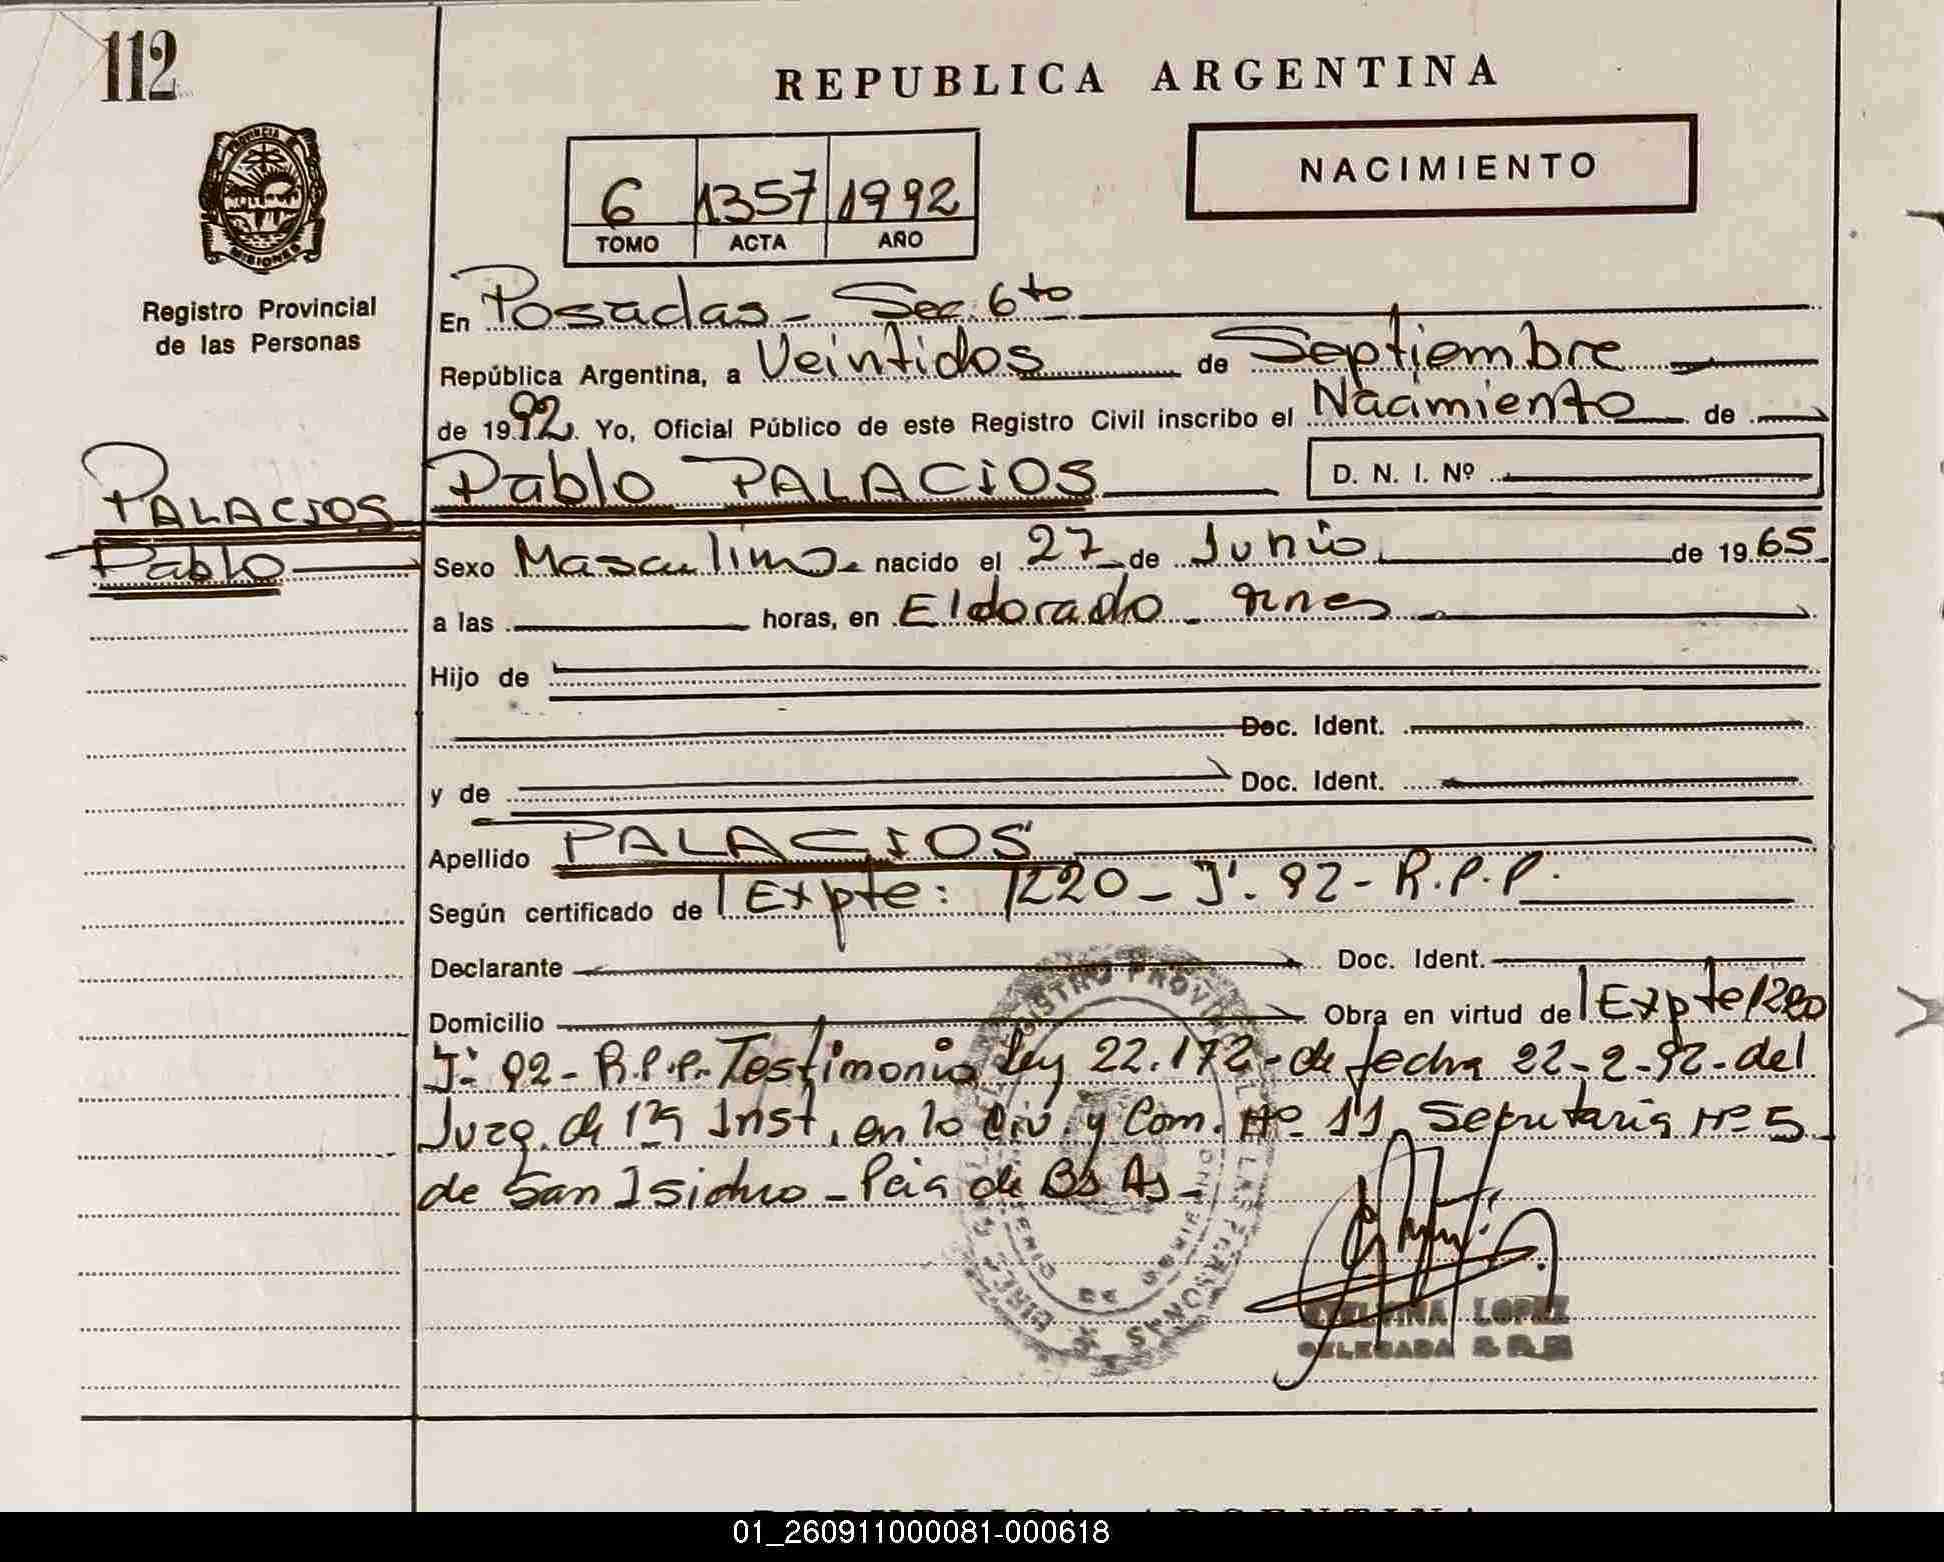 112
REPUBLICA ARGENTINA
NACIMIENTO
6 1357 1992
TOMO ACTA AÑO
PROVINCIA
MISIONES
Registro Provincial
de las Personas
En Posadas - Sec. 6to
República Argentina, a Veintidos de Septiembre
de 1992. Yo, Oficial Público de este Registro Civil inscribo el Nacimiento de
Pablo PALACIOS D. N. I. Nº
PALACIOS
Pablo
Sexo Masculino nacido el 27 de Junio de 1965
a las horas, en Eldorado - mnes
Hijo de
Doc. Ident.
y de Doc. Ident.
Apellido PALACIOS
Según certificado de Expte: 1220 - J. 92 - R.P.P.
Declarante Doc. Ident.
Domicilio Obra en virtud de Expte 1220
J. 92 - R.P.P. Testimonio Ley 22.172 - de fecha 22-2-92 - del
Juzg. de 1ra Inst. en lo Civ. y Com. Nº 11 Secretaria Nº 5
de San Isidro - Pcia de Bs As -
LOPEZ
DELEGADA
REPUBLICA ARGENTINA
01_260911000081-000618